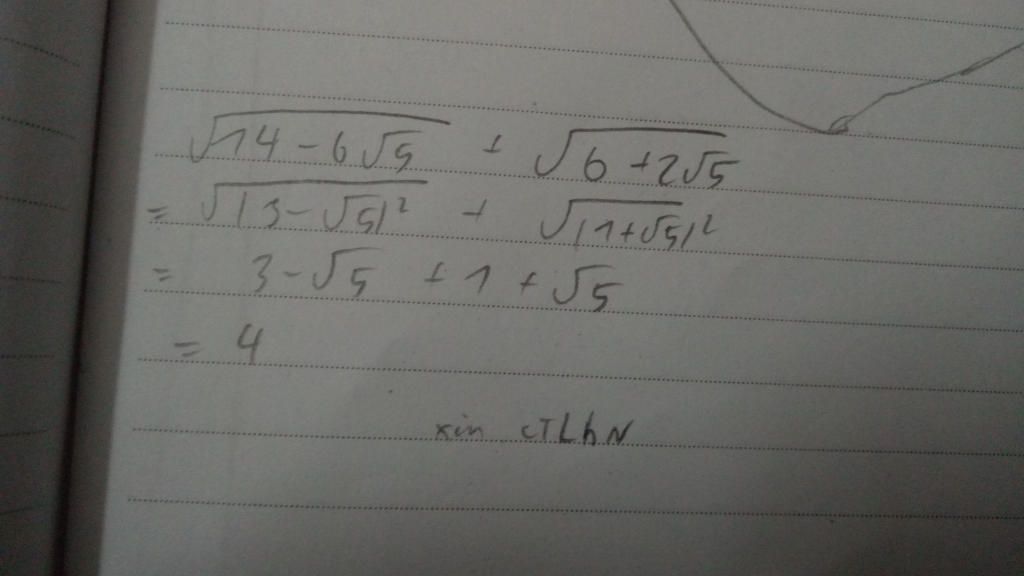 √14 - 6√5 + √6 + 2√5
= √(3 - √5)² + √(1 + √5)²
= 3 - √5 + 1 + √5
= 4
xin CTLhN